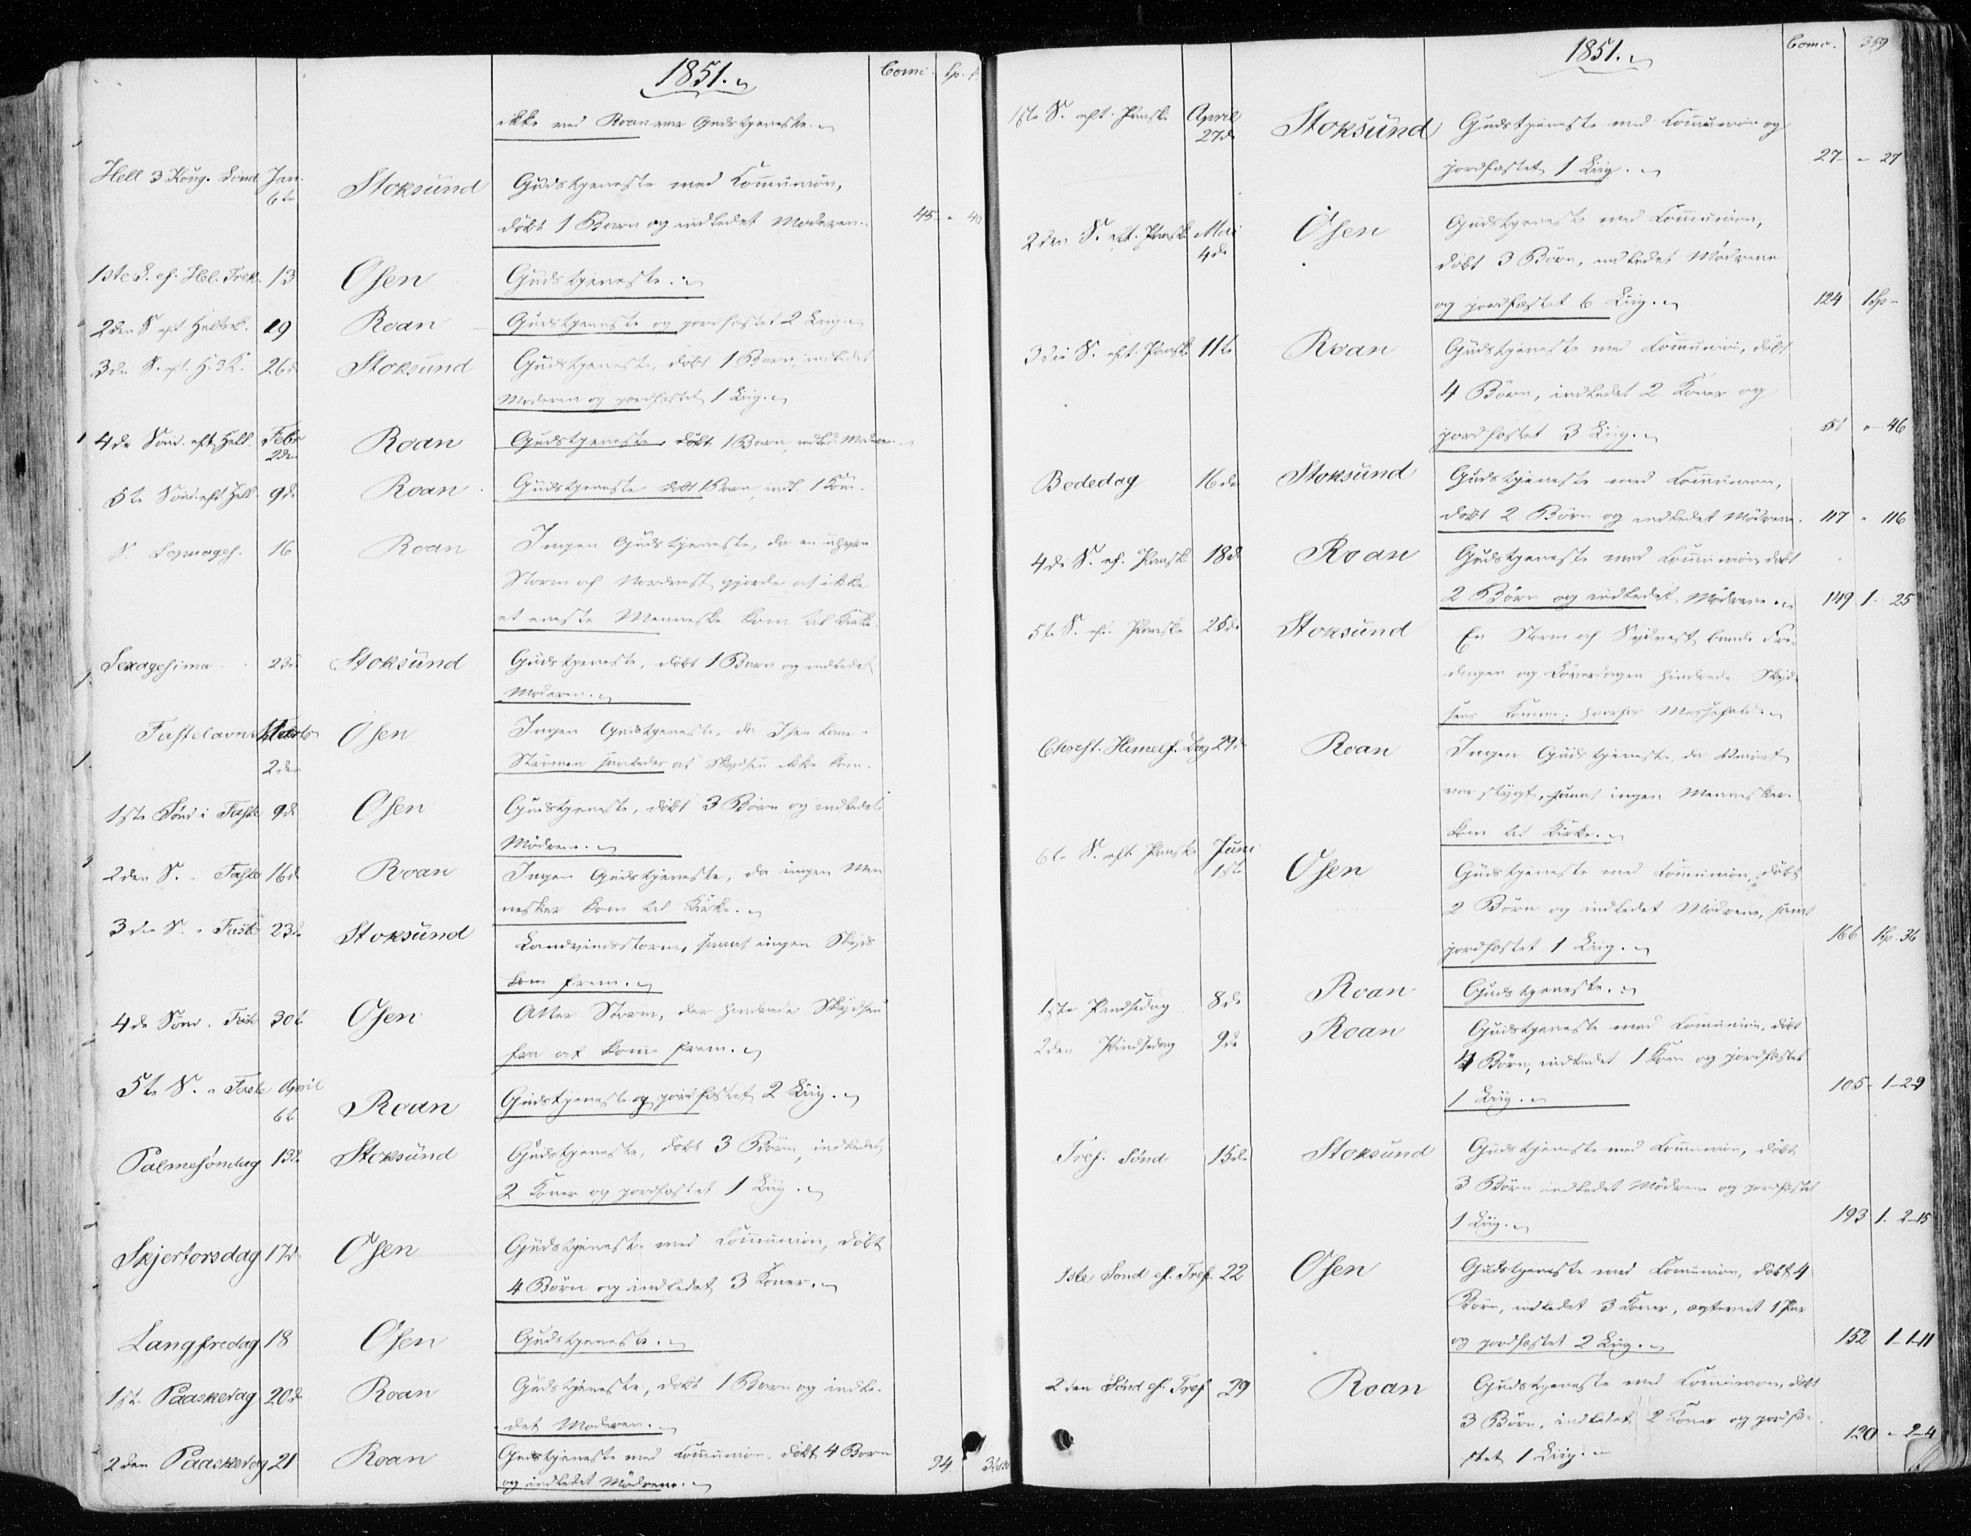 1851.
Comu.
ikke ved Roan var Gudstjeneste.
Hell 3 Kong. Sønd Jan. 6te Stoksund Gudstjeneste med Communion,
døbt 1 Barn og indledet Moderen. 45
1ste S. ef. Hel. Trek. 13 Osen Gudstjeneste.
2den S eft Heltrk. 19 Roan Gudstjeneste og jordfæstet 2 Liig.
3de S. eft. H. 3 K. 26de Stoksund Gudstjeneste, døbt 1 Barn, indledet
Moderen og jordfæstet 1 Liig.
4de Sønd. eft Hell. Febr 2den Roan Gudstjeneste, døbt 1 Barn, indled. Moderen
5te Sønd. eft Hell. 9de Roan Gudstjeneste døbt 1 Barn, indl. 1 Kone.
S. Septuages. 16 Roan Ingen Gudstjeneste, da en
Storm af Nordvest gjorde at ikke
et eneste Menneske kom til Kirke.
Sexagesima 23de Stoksund Gudstjeneste, døbt 1 Barn og indledet
Moderen.
Fastelavn Marts 2den Osen Ingen Gudstjeneste, da
Stormen at Skydsen ikke kom.
1ste Sønd i Faste 9de Osen Gudstjeneste, døbt 3 Børn og indledet
Mødrene.
2den S. " Faste 16de Roan Ingen Gudstjeneste, da ingen Men
nesker kom til Kirke.
3die S. " Faste 23de Stoksund Landvindsstorm, samt ingen Skyds
kom frem.
4de Sønd. Faste 30te Osen Atter Storm, der hindrede Skydsen
fra at komme frem.
5te S. " Faste April 6te Roan Gudstjeneste og jordfæstet 2 Liig.
Palmesøndag 13de Stoksund Gudstjeneste, døbt 3 Børn, indledet
2 Koner og jordfæstet 1 Liig.
Skjertorsdag 17de Osen Gudstjeneste med Communion, døbt
4 Børn og indledet 3 Koner.
Langfredag 18 Osen Gudstjeneste.
1ste Paaskedag 20de Roan Gudstjeneste, døbt 1 Barn og indle-
det Moderen.
2den Paaskedag 21 Roan Gudstjeneste med Communion, døbt 4 Børn 94
og indledet Mødrene.
1851.
Comu. 359
1ste S. eft. Paaske April 27de Stoksund Gudstjeneste med Communion og
jordfæstet 1 Liig. 27 - " 27
2den S. eft. Paaske Mai 4de Osen Gudstjeneste med Communion,
døbt 3 Børn, indledet Mødrene
og jordfæstet 6 Liig. 124 1 Sp -
3die S. eft. Paaske 11te Roan Gudstjeneste med Communion, døbt
4 Børn, indledet 2 Koner og
jordfæstet 3 Liig. 51 " - 46
Bededag 16de Stoksund Gudstjeneste med Communion,
døbt 2 Børn og indledet Mødrene. 117 " 116
4de S. ef. Paaske 18de Roan Gudstjeneste med Communion, døbt
2 Børn og indledet Mødrene. 149 1 - 25
5te S. eft. Paaske 25de Stoksund En Storm af Sydvest baade Fre-
dagen og Løverdagen hindrede Skyd-
sens Komme, hvorfor Messefald.
Christ. Himmelf. Dag 29de Roan Ingen Gudstjeneste, da Veiret
var stygt, samt ingen Mennesker
kom til Kirke.
6te S. eft Paaske Juni 1ste Osen Gudstjeneste med Communion, døbt
2 Børn og indledet Mødrene, samt
jordfæstet 1 Liig. 166 1 Sp 36
1ste Pindsedag 8de Roan Gudstjeneste.
2den Pindsedag 9de Roan Gudstjeneste med Communion, døbt
4 Børn, indledet 1 Kone og jordfæstet
1 Liig. 105 - 1 - 29
Tref. Sønd 15de Stoksund Gudstjeneste med Communion, døbt
3 Børn indledet Mødrene og jordfæstet
1 Liig. 193 1. 2-15
1ste Sønd ef. Tref. 22 Osen Gudstjeneste med Communion, døbt 4
Børn, indledet 3 Koner, ægteviet 1 Par
og jordfæstet 2 Liig. 152 1-1-11
2den Sønd ef. Tref 29 Roan Gudstjeneste med Communion, døbt
3 Børn, indledet 2 Koner og jordfæ-
stet 1 Liig. 120 " 2-4